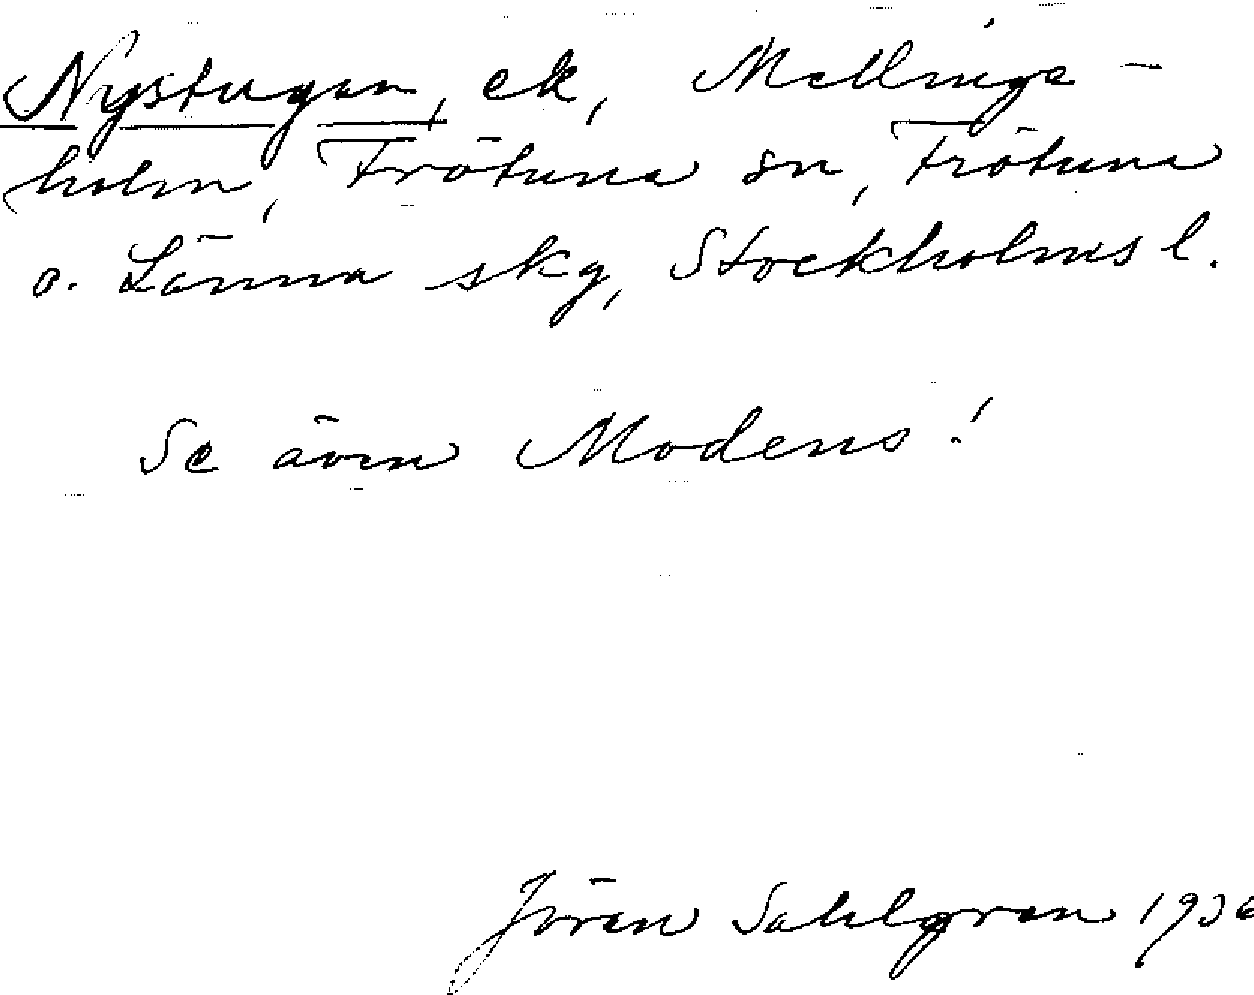 Nystugan, ek, Mellinge-
holm, Frötuna sn, Frötuna
o. Länna skg, Stockholms l.
Se även Modens!
Jöran Sahlgren 1936